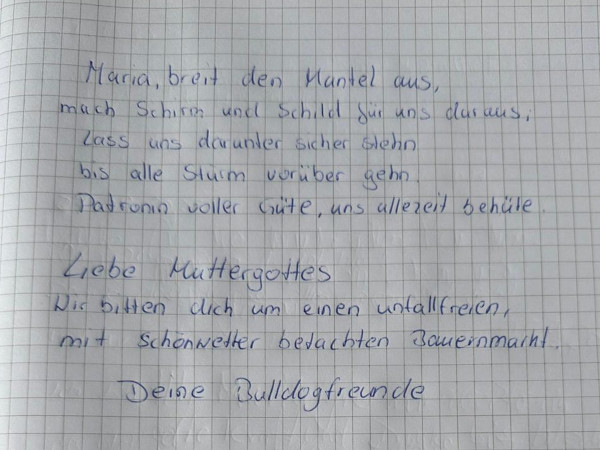 Maria, breit den Mantel aus,
mach Schirm und Schild für uns daraus;
Lass uns darunter sicher stehn
bis alle Stürm vorüber gehn.
Patronin voller Güte, uns allezeit behüte.
Liebe Muttergottes
Wir bitten dich um einen unfallfreien,
mit Schönwetter bedachten Bauernmarkt.
Deine Bulldogfreunde